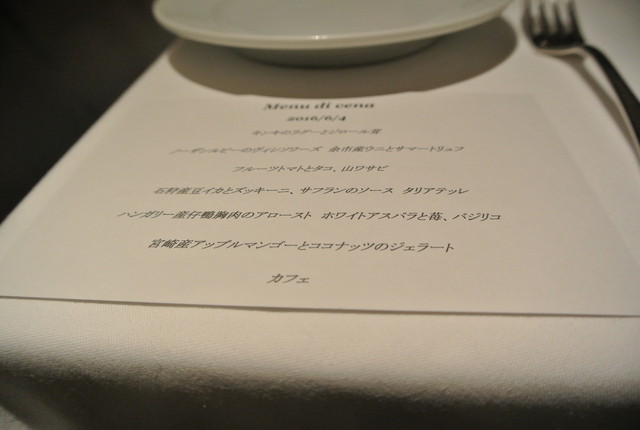 Menu di cena
2016/6/4
キンキのラグーとジロール茸
ノーザンルビーのヴィシソワーズ 余市産ウニとサマートリュフ
フルーツトマトとタコ、山ワサビ
石狩産豆イカとズッキーニ、サフランのソース タリアテッレ
ハンガリー産仔鴨胸肉のアロースト ホワイトアスパラと苺、バジリコ
宮崎産アップルマンゴーとココナッツのジェラート
カフェ